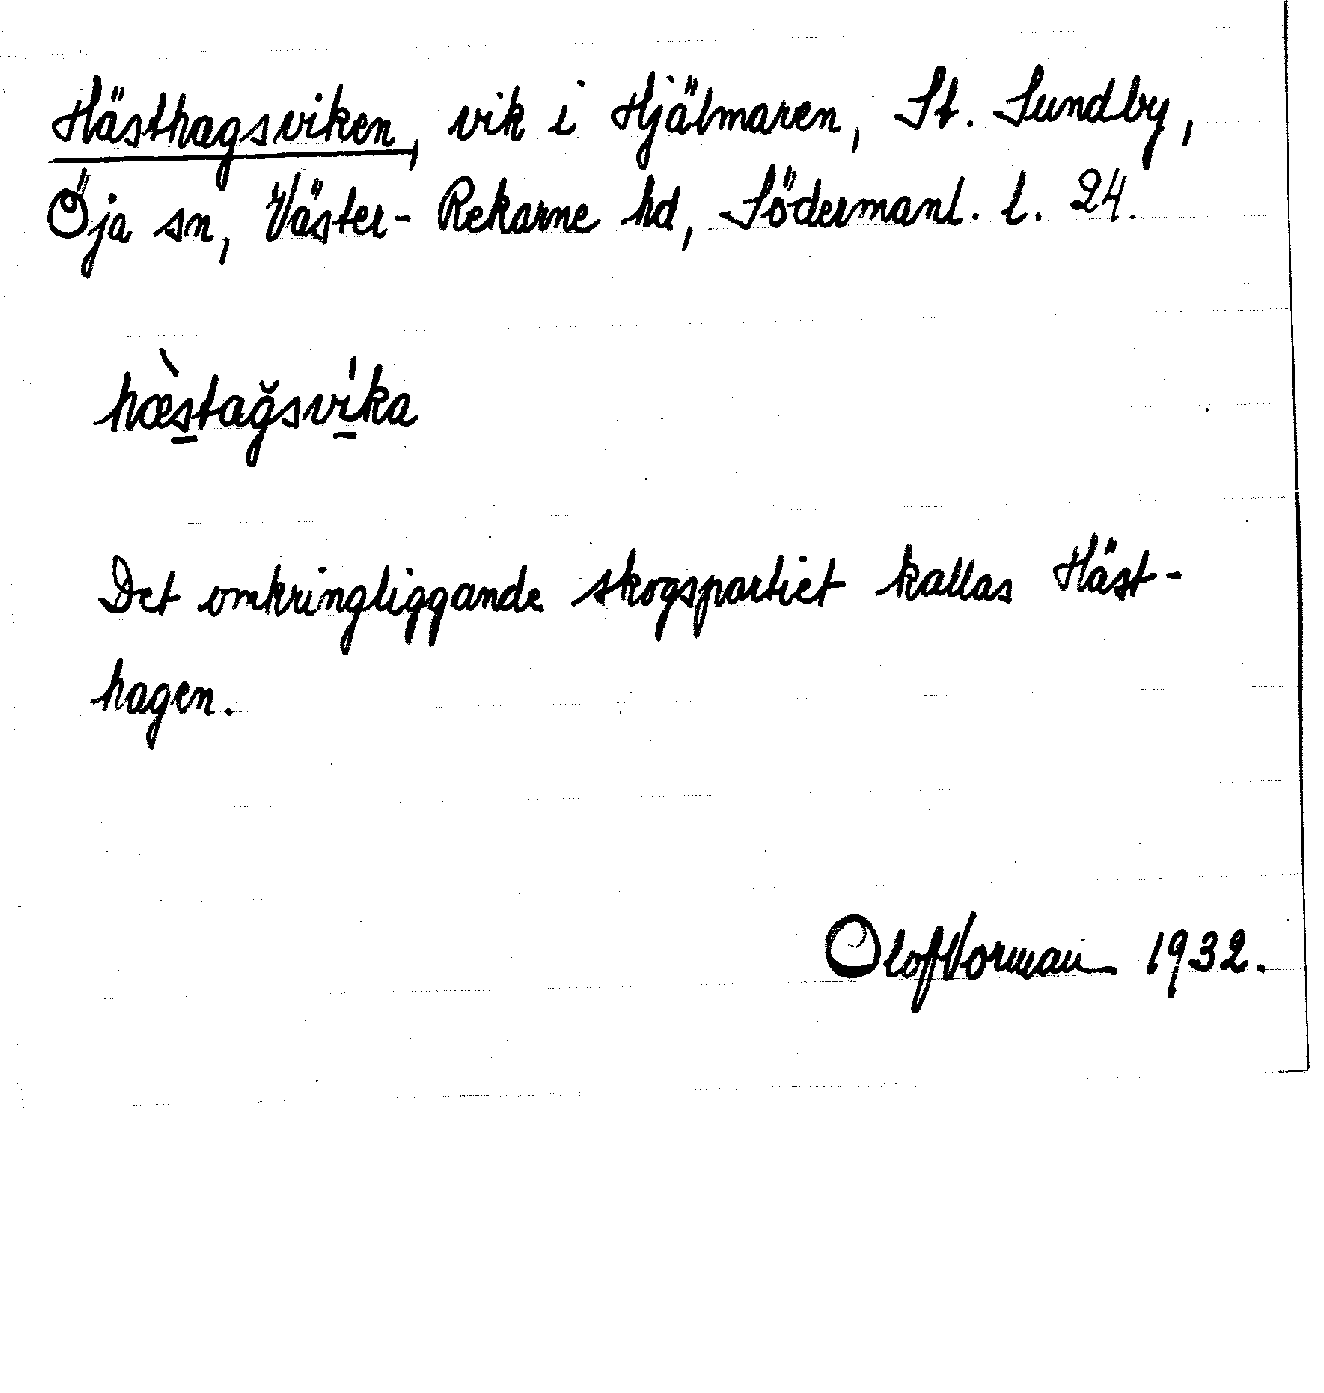 Hästhagsviken, vik i Hjälmaren, St. Sundby,
Öja sn, Väster-Rekarne hd, Södermanl. l. 24.
hæ̀s̲tağsví̲ka
Det omkringliggande skogspartiet kallas Häst-
hagen.
Olof Vorman 1932.